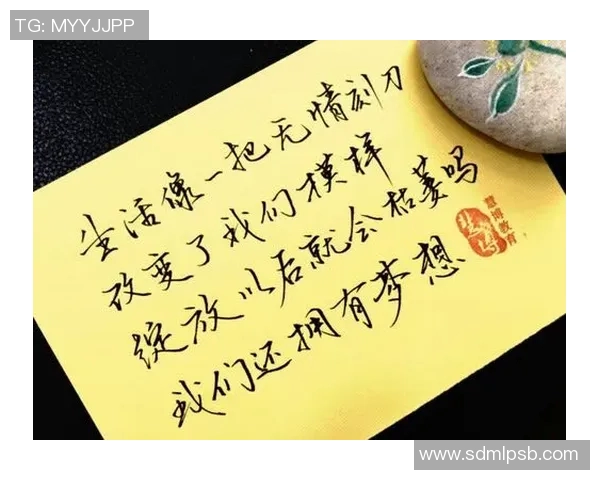 TG: MYYJJPP
生活像一把无情刻刀
改变了我们模样
绽放以后就会枯萎吗
我们还拥有梦想
慧博教育
www.sdmlpsb.com